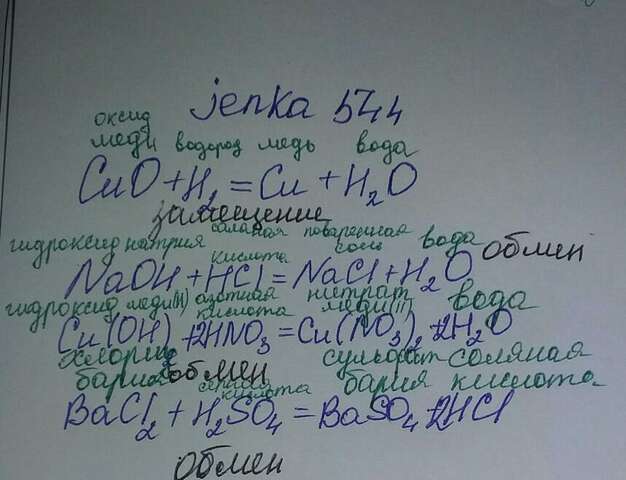 jenka 544
оксид
меди водород медь вода
CuO + H₂ = Cu + H₂O
замещение
гидроксид натрия соляная кислота поваренная соль вода
NaOH + HCl = NaCl + H₂O обмен
гидроксид меди(II) азотная кислота нитрат меди(II) вода
Cu(OH)₂ + 2HNO₃ = Cu(NO₃)₂ + 2H₂O
обмен
хлорид бария серная кислота сульфат бария соляная кислота
BaCl₂ + H₂SO₄ = BaSO₄ + 2HCl
обмен